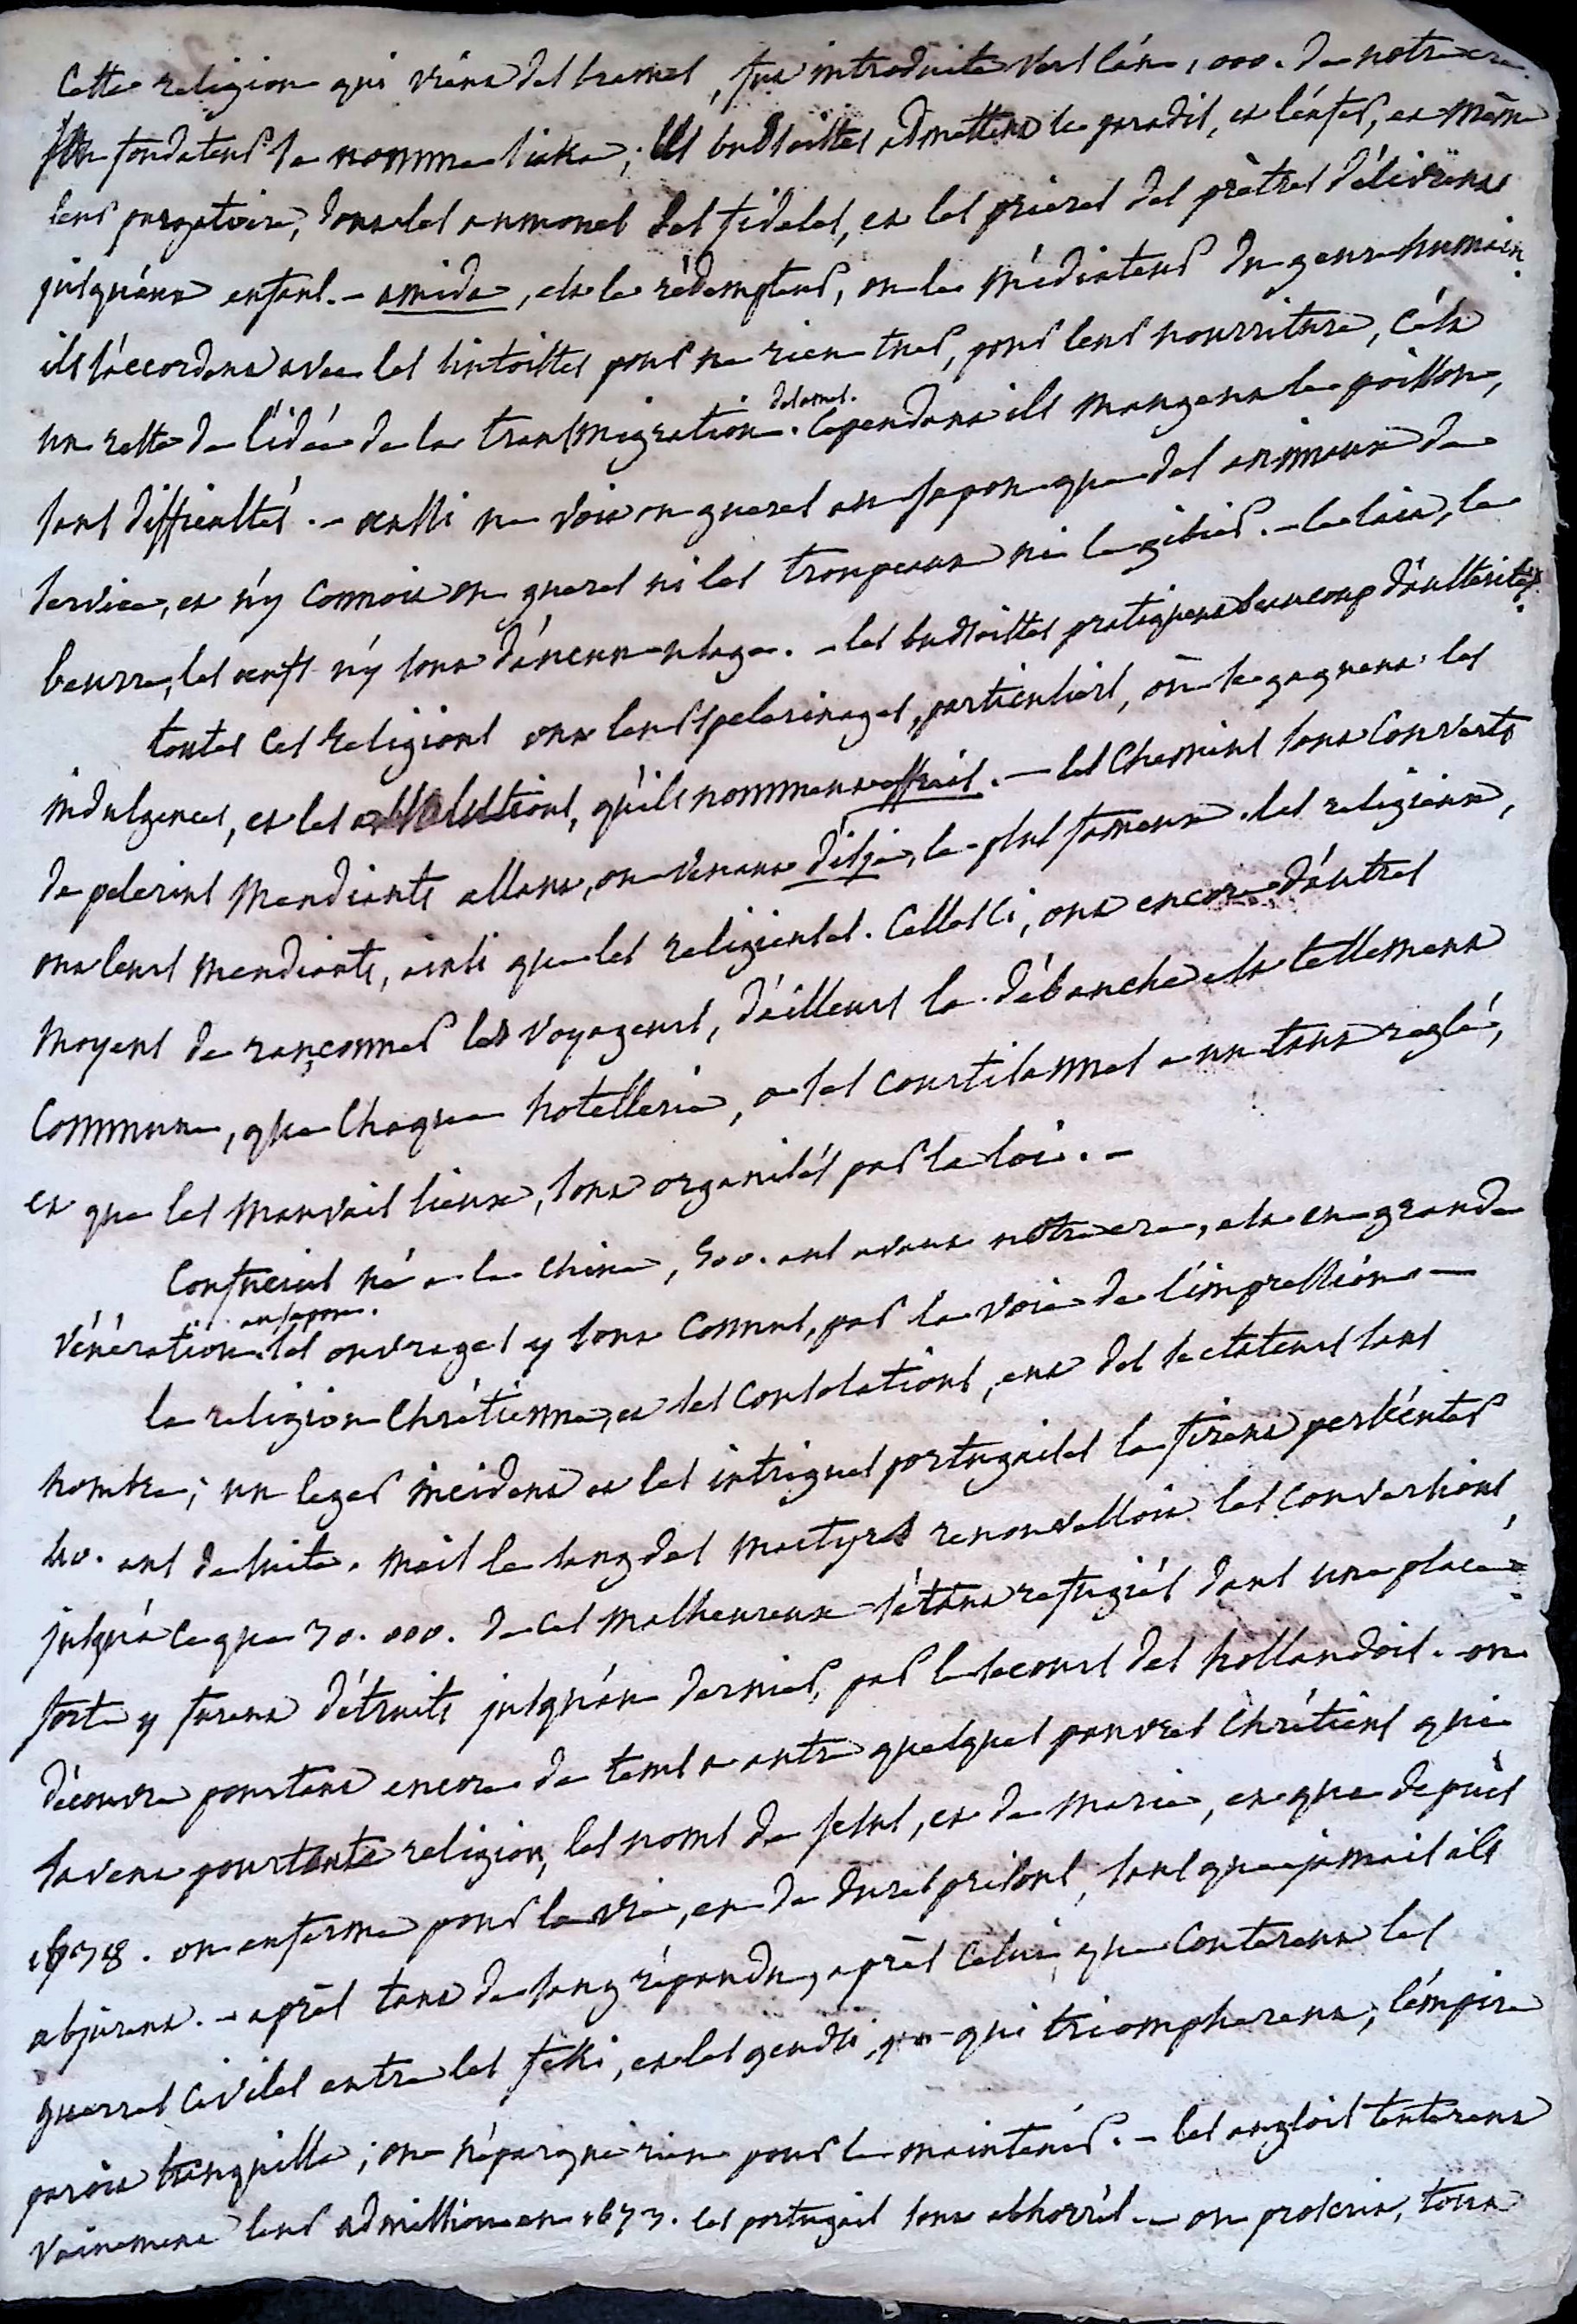 Cette religion qui vient des brames, fut introduite vers l'an 1000. de notre ere.
son fondateur se nomme siaka; les budsoistes admettent le paradis, et l'enfer, et même
leur purgatoire, dont les aumones des fideles, et les prieres des prètres délivrent
jusqu'aux enfans. - amida, est le rédempteur, ou le médiateur du genre humain.
ils s'accordent avec les sintoistes pour ne rien tuer, pour leur nourriture, c'est
un reste de l'idée de la transmigration des ames. Cependant ils mangent le poisson,
sans difficultés. - aussi ne voit on gueres au japon que des animaux de
service, et n'y connoit on gueres ni les troupeaux ni le gibier. - le lait, le
beurre, les oeufs n'y sont d'aucun usage. - les budsoistes pratiquent beaucoup d'austerités.
toutes ces religions ont leurs pelerinages, particuliers, où se gagnent les
indulgences, et les absolutions, qu'ils nomment offrais. - les chemins sont couverts
de pelerins mendiants allant, ou venant d'isje, le plus fameux. les religieux,
ont leurs mendiants, ainsi que les religieuses. Celles ci, ont encore d'autres
moyens de rançonner les voyageurs, d'ailleurs la débauche est tellement
commune, que chaque hotellerie, a ses courtisannes a un taux reglé,
et que les mauvais lieux, sont organisés par la loi. -
Confucius né a la chine, 500. ans avant notre ere, est en grande
vénération au japon. ses ouvrages y sont connus, par la voie de l'impression -
la religion chrétienne, et ses consolations, eut des sectateurs sans
nombre; un leger incident et les intrigues portugaises la firent persécuter
40. ans de suite. mais le sang des martyrs renouvelloit les conversions,
jusqu'a ce que 30.000. de ces malheureux s'étant refugiés dans une place
forte y furent détruits jusqu'au dernier, par le secours des hollandois. on
découvre pourtant encore de tems a autre quelques pauvres chrétiens qui
savent pour toute religion, les noms de jesus, et de marie, et que depuis
1638. on enferme pour la vie, en de dures prisons, sans que jamais ils
abjurent. - après tant de sang répandu, après celui, que couterent les
guerres civiles entre les feki, et les gendsi, qui triompherent, l'empire
paroit tranquille; on n'épargne rien pour le maintenir. - les anglois tenterent
vainement leur admission en 1673. les portugais sont abhorrés. - on proscrit, tout